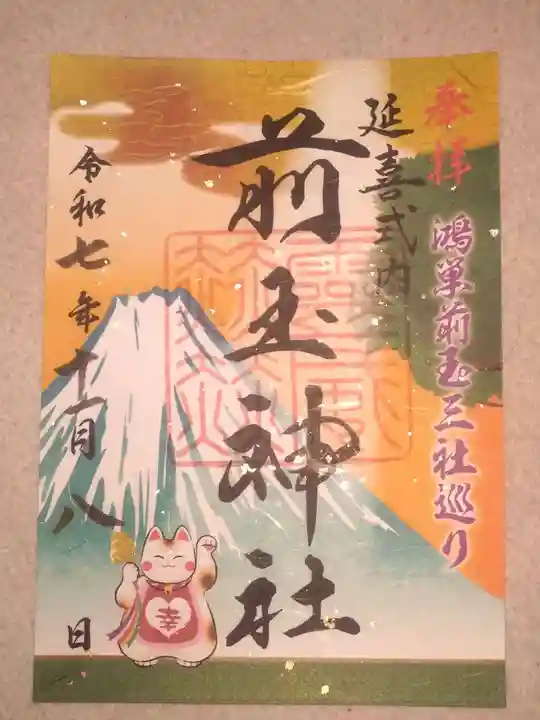 奉拝
鴻巣前玉三社巡り
延喜式内
前玉神社
令和七年十一月八日
幸